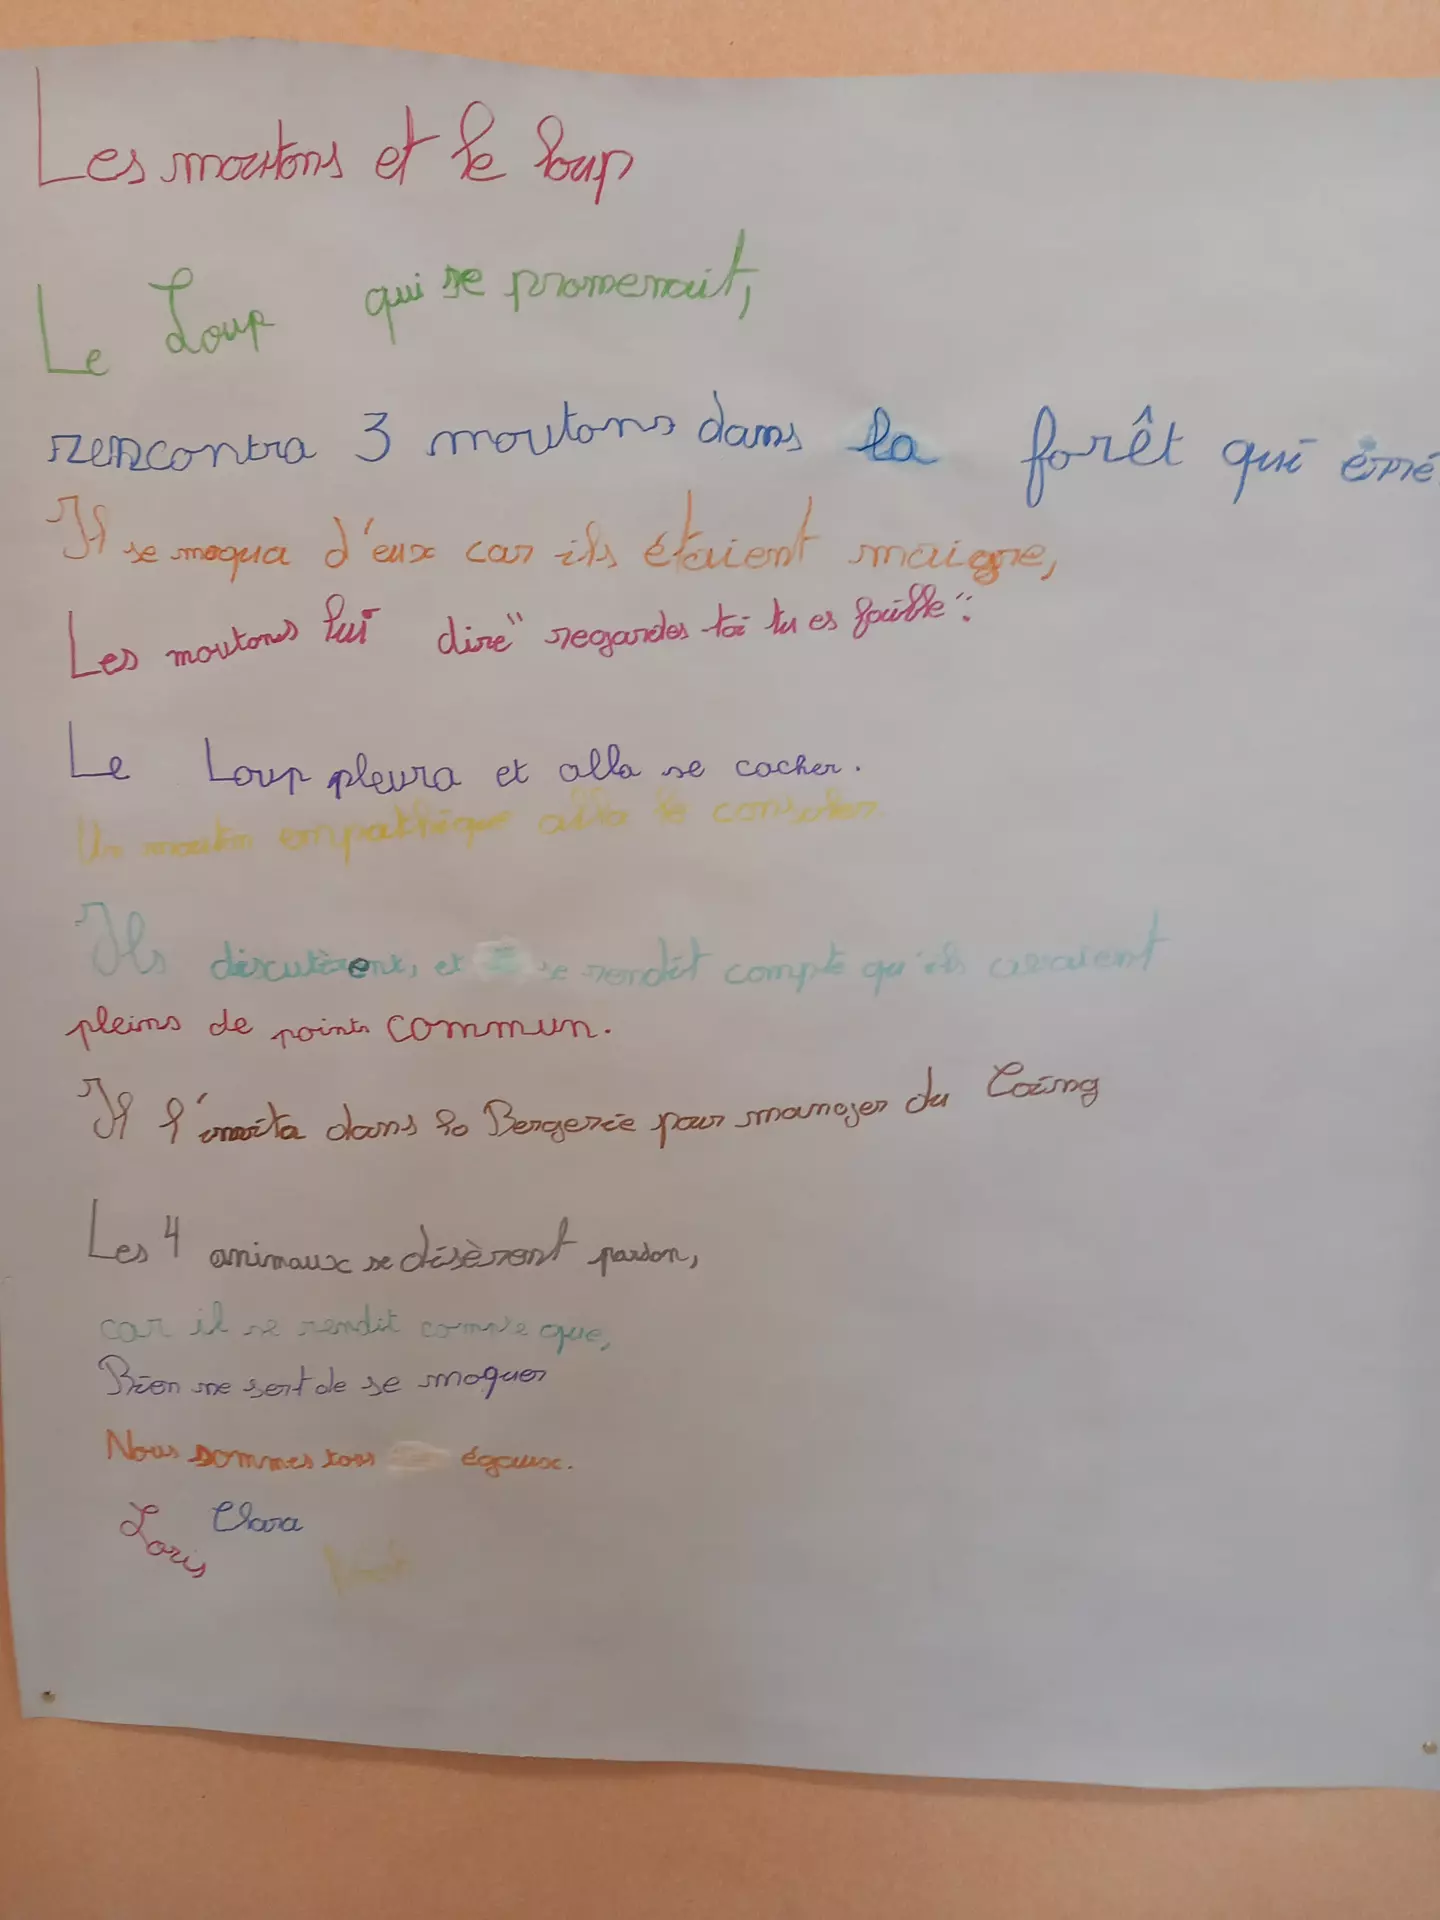 Les moutons et le loup
Le Loup qui se promenait,
rencontra 3 moutons dans la forêt qui
Il se moqua d'eux car ils étaient maigre,
Les moutons lui dire" regardes-toi tu es faible".
Le Loup pleura et alla se cacher.
Un mouton empathique alla le consoler.
Ils discutèrent, et se rendit compte qu'ils avaient
pleins de points commun.
Il l'invita dans la Bergerie pour manger du Coing
Les 4 animaux se disèrent pardon,
car il se rendit compte que,
Rien ne sert de se moquer
Nous sommes tous égaux.
Loris Clara